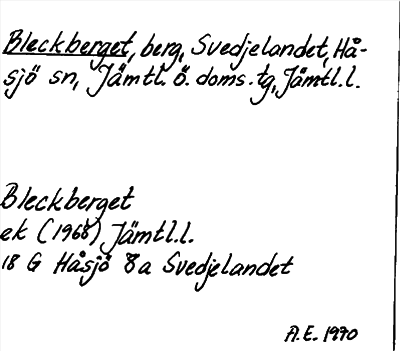 Bleckberget, berg, Svedjelandet, Hå-
sjö sn, Jämtl. ö. doms. tg, Jämtl. l.
Bleckberget
ek (1968) Jämtl. l.
18 G Håsjö 8a Svedjelandet
A.E. 1970